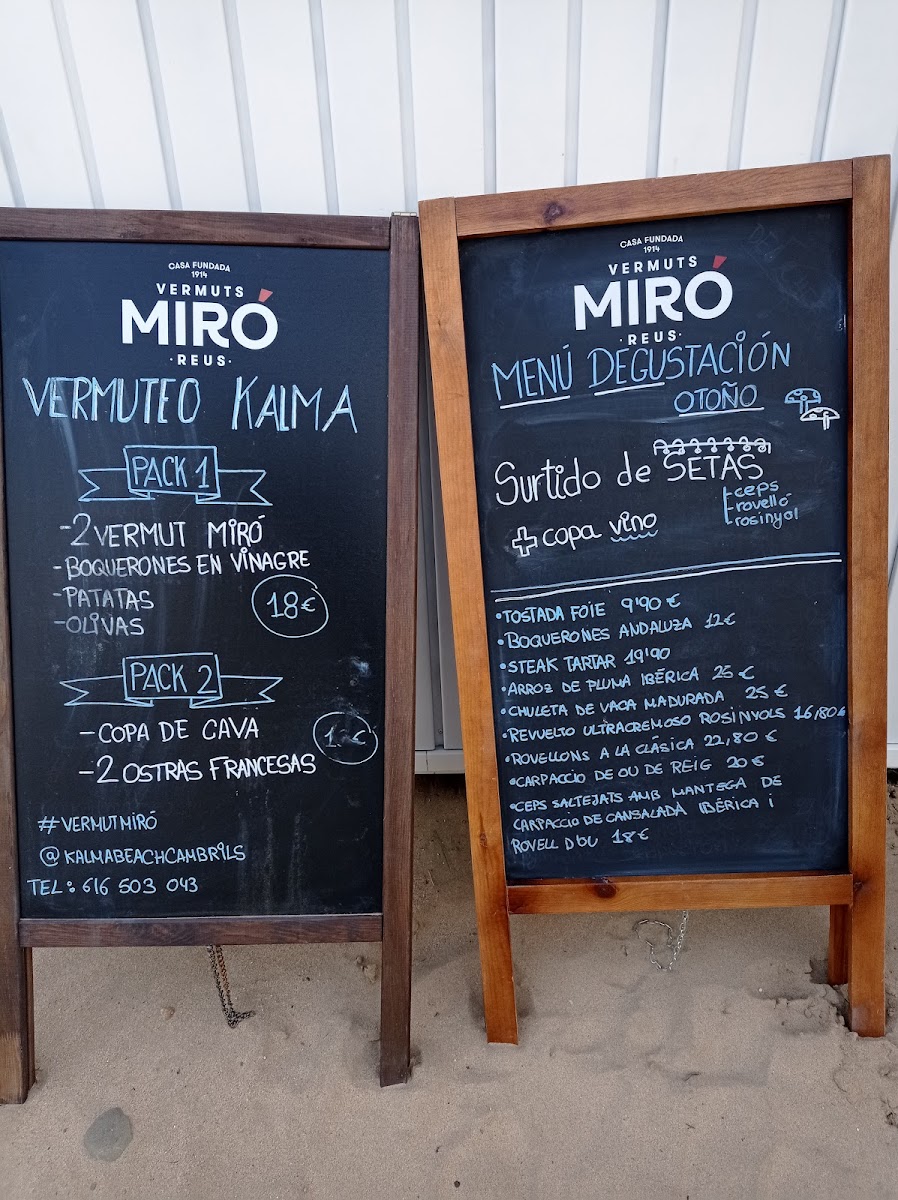 CASA FUNDADA
1914
VERMUTS
MIRÓ
·REUS·
VERMUTEO KALMA
PACK 1
-2 VERMUT MIRÓ
-BOQUERONES EN VINAGRE
-PATATAS
-OLIVAS
18€
PACK 2
-COPA DE CAVA
-2 OSTRAS FRANCESAS
#VERMUTMIRÓ
@KALMABEACHCAMBRILS
TEL: 616 503 043
CASA FUNDADA
1914
VERMUTS
MIRÓ
·REUS·
MENÚ DEGUSTACIÓN
OTOÑO
Surtido de SETAS
ceps
rovelló
rosinyol
+ copa vino
•TOSTADA FOIE 9'90 €
•BOQUERONES ANDALUZA 12€
•STEAK TARTAR 19'90
•ARROZ DE PLUMA IBÉRICA 25 €
•CHULETA DE VACA MADURADA 25 €
•REVUELTO ULTRACREMOSO ROSINYOLS 16,80€
•ROVELLONS A LA CLÁSICA 22,80 €
•CARPACCIO DE OU DE REIG 20 €
•CEPS SALTEJATS AMB MANTEGA DE
CARPACCIO DE CANSALADA IBÉRICA i
ROVELL D'OU 18€